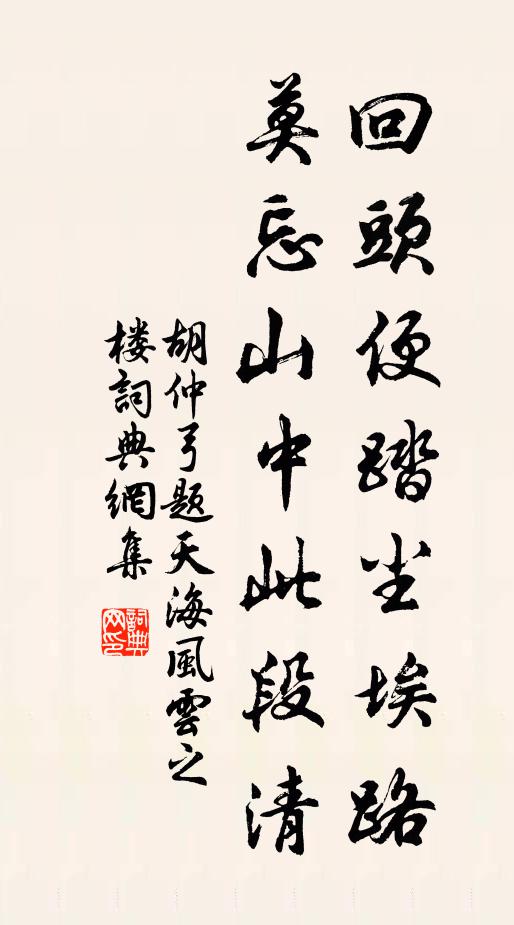 回頭便踏尘埃路
莫忘山中此段清
胡仲弓题天海風雲之
楼詞典網集
詞典网印